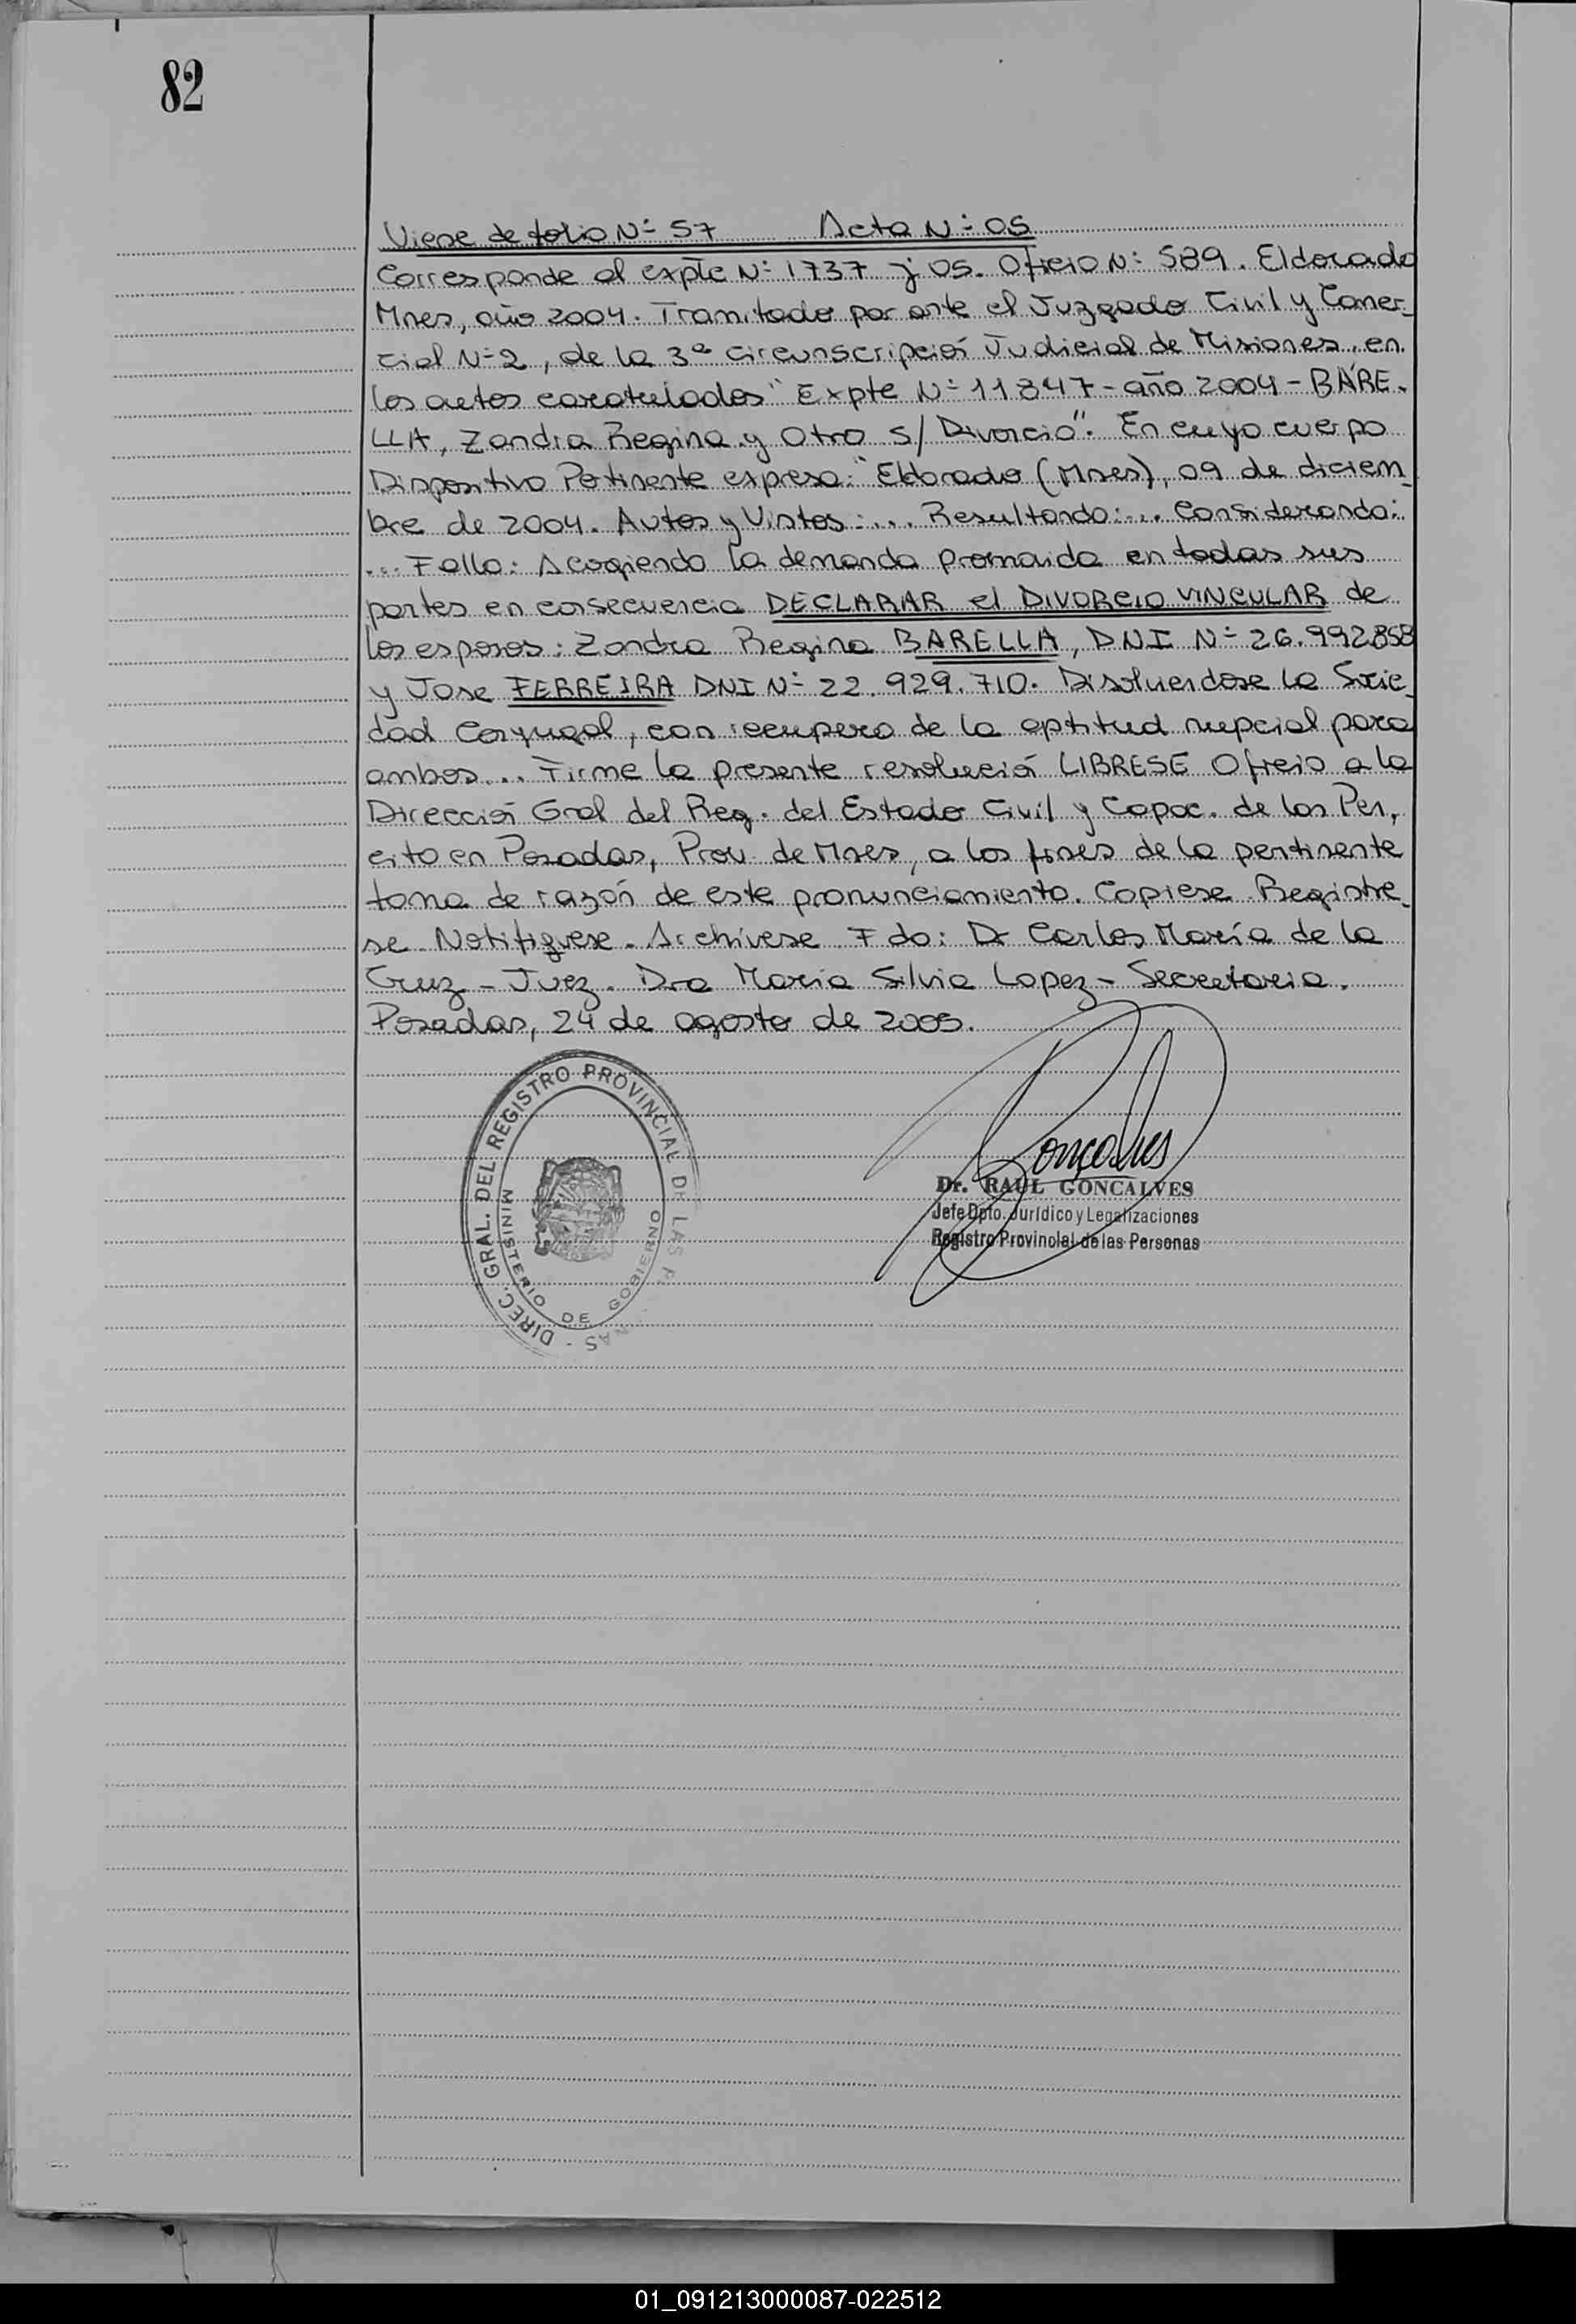 82
Viene de folio Nº 57 Acta Nº 05
Corresponde al expte Nº 1737 j 05. Oficio Nº 589. Eldorado
Mnes, año 2004. Tramitado por ante el Juzgado Civil y Comer_
cial Nº 2, de la 3ª circunscripción Judicial de Misiones, en
los autos caratulados "Expte Nº 11847-año 2004-BARE-
LLA, Zandra Regina y Otro s/ Divorcio". En cuyo cuerpo
Dispositivo Pertinente expresa: "Eldorado (Mnes), 09 de diciem_
bre de 2004. Autos y Vistos:... Resultando:... Considerando:
... Fallo: Acogiendo la demanda promovida en todas sus
partes en consecuencia DECLARAR el DIVORCIO VINCULAR de
los esposos: Zandra Regina BARELLA, DNI Nº 26.992.858
y Jose FERREIRA DNI Nº 22.929.710. Disolviendose la Socie_
dad Conyugal, con recupero de la aptitud nupcial para
ambos... Firme la presente resolución LIBRESE Oficio a la
Dirección Gral del Reg. del Estado Civil y Capac. de las Per,
cito en Posadas, Prov. de Mnes, a los fines de la pertinente
toma de razón de este pronunciamiento. Copiese. Registre_
se. Notifiquese. Archívese Fdo: Dr Carlos María de la
Cruz - Juez. Dra Maria Silvia Lopez - Secretaria.
Posadas, 24 de agosto de 2005.
DIREC. GRAL. DEL REGISTRO PROVINCIAL DE LAS P NAS -
MINISTERIO DE GOBIERNO
Goncalves
Dr. RAUL GONCALVES
Jefe Dpto. Jurídico y Legalizaciones
Registro Provincial de las Personas
01_091213000087-022512